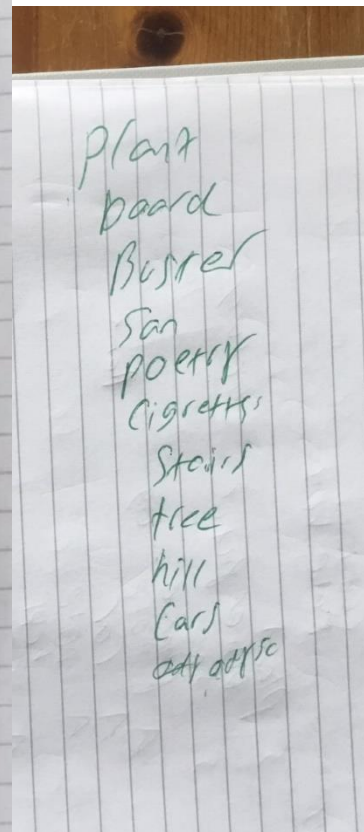 Plant
board
Buster
San
poetry
Cigrettes
Stairs
tree
hill
Cars